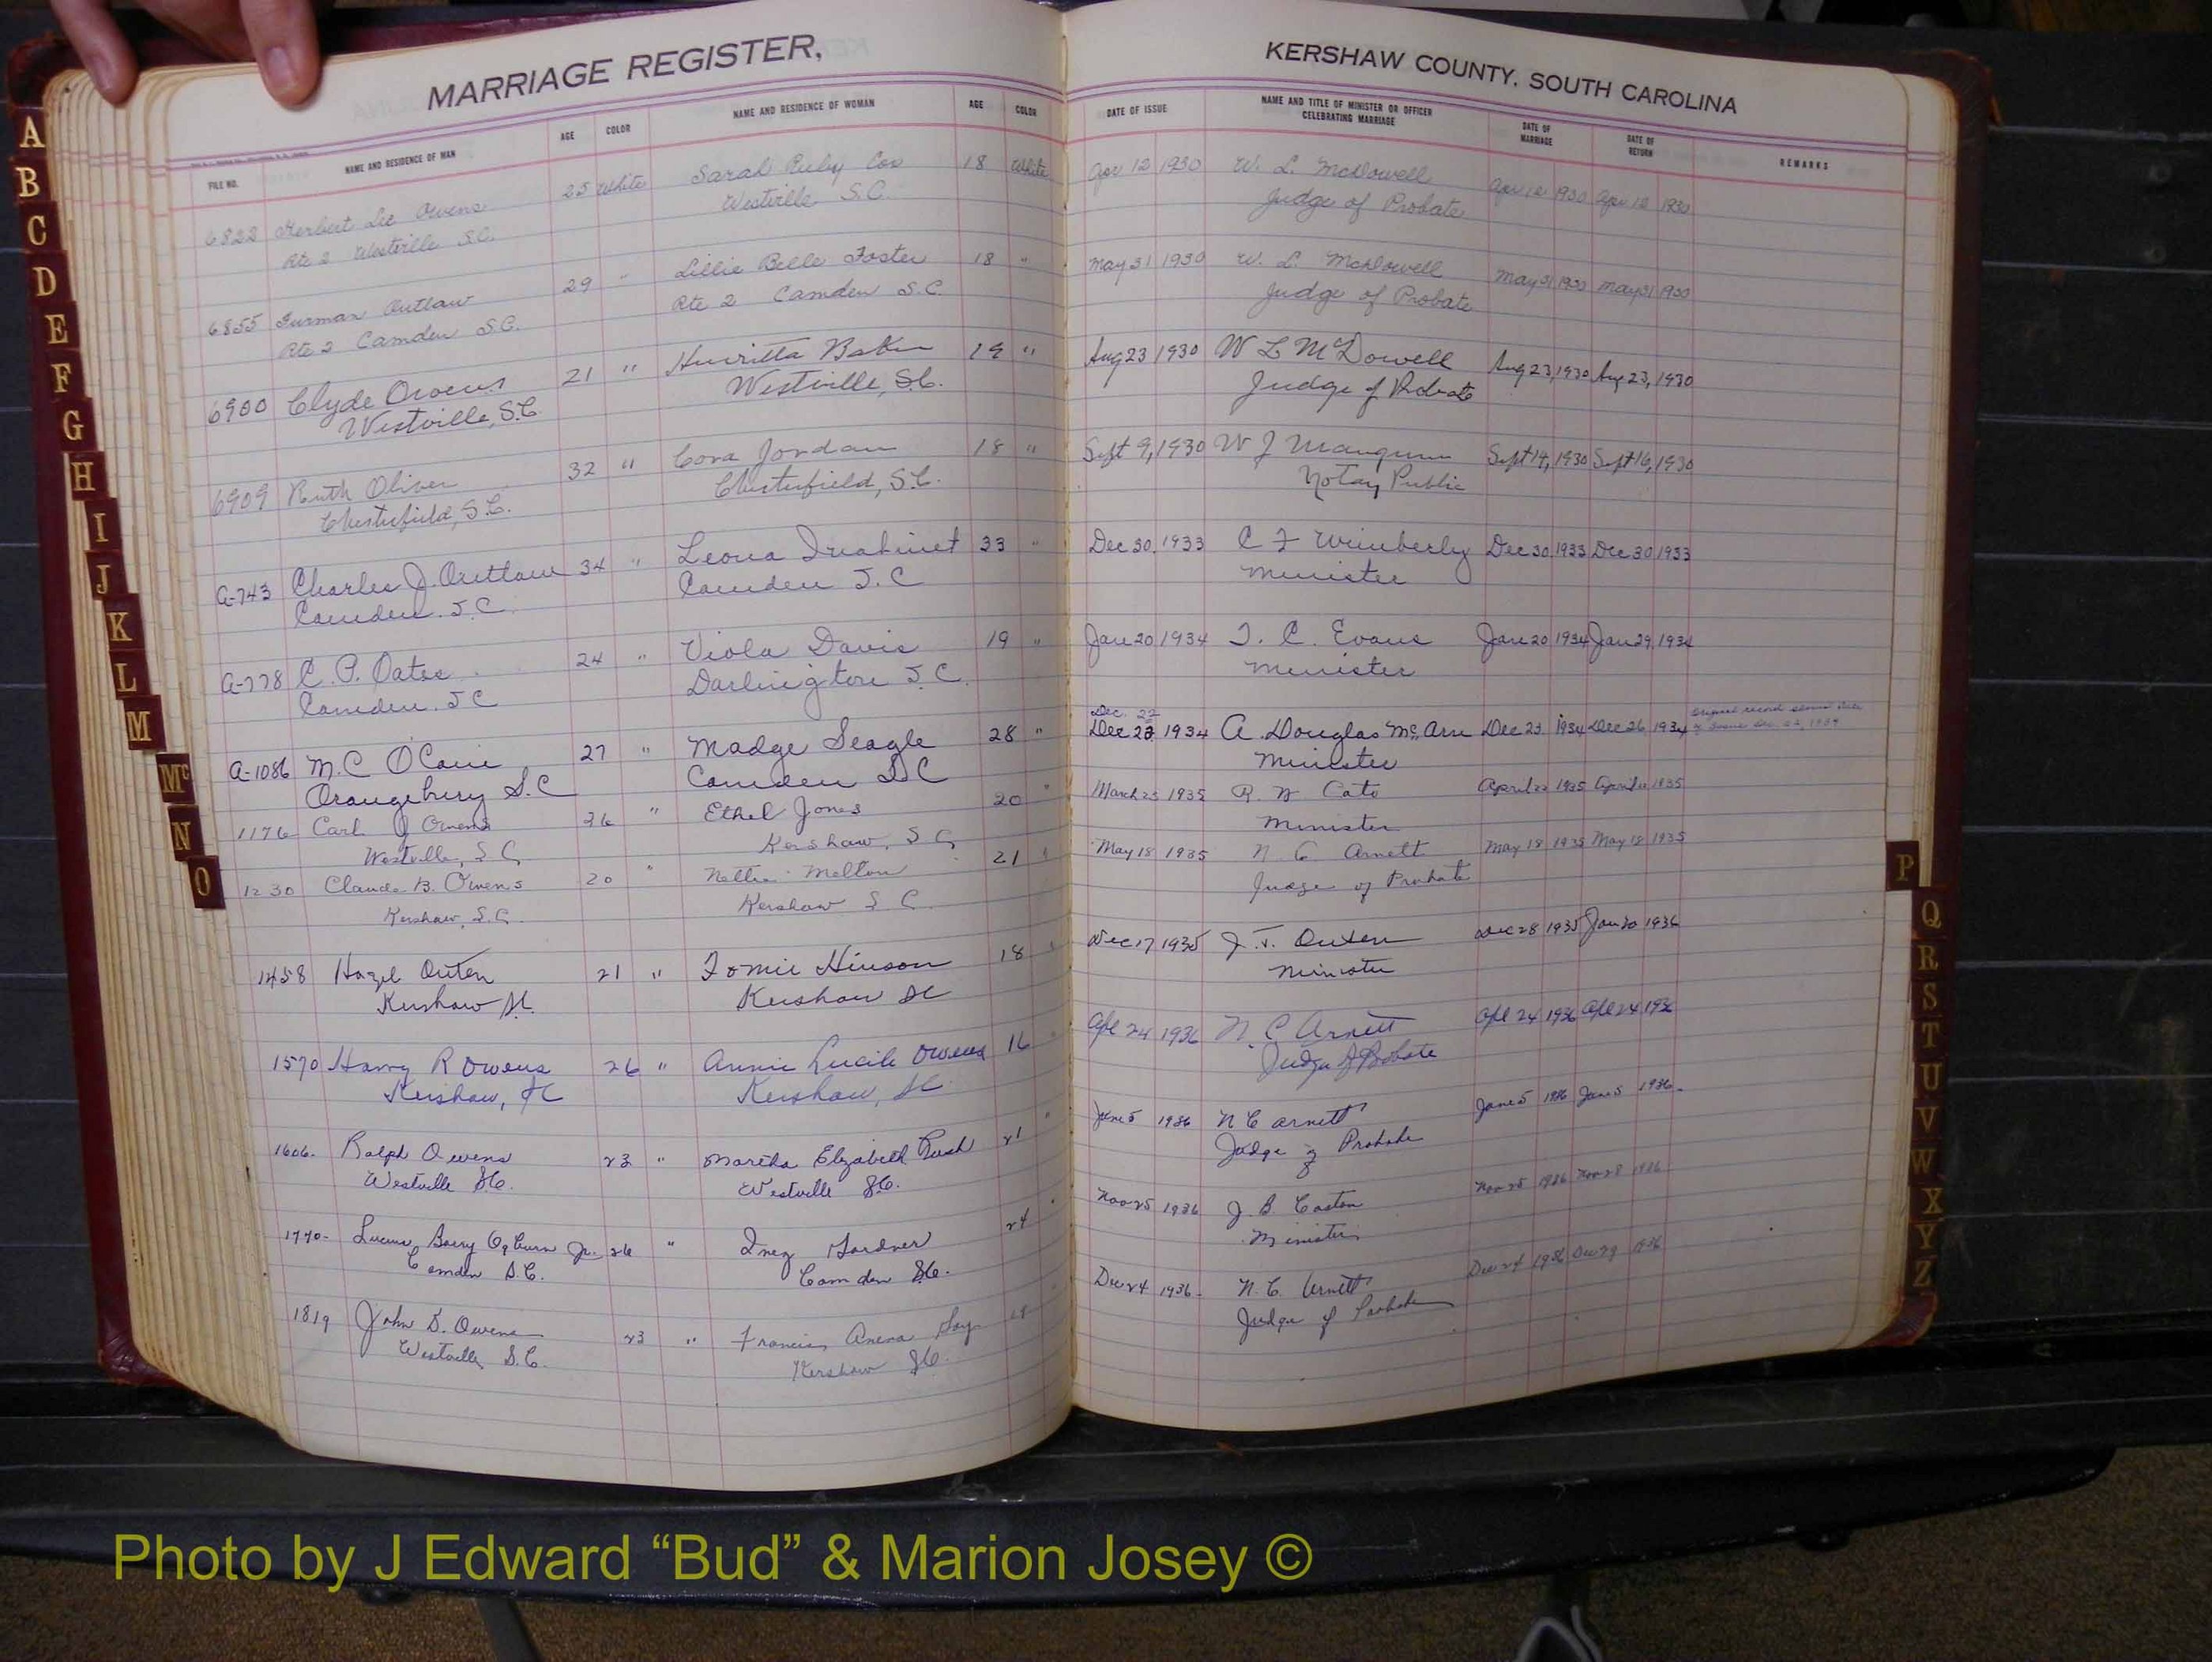 MARRIAGE REGISTER,
KERSHAW COUNTY, SOUTH CAROLINA
FILE NO. NAME AND RESIDENCE OF MAN AGE COLOR NAME AND RESIDENCE OF WOMAN AGE COLOR DATE OF ISSUE NAME AND TITLE OF MINISTER OR OFFICER CELEBRATING MARRIAGE DATE OF MARRIAGE DATE OF RETURN REMARKS
Herbert Lee Owens 25 White Sarah Ruby Cox 18 White Apr 12 1930 W. L. McDowell Apr 12 1930 Apr 12 1930
Rte 2 Westville S.C. Westville S.C. Judge of Probate
6855 Furman Outlaw 29 " Lillie Belle Foster 18 " May 31 1930 W. L. McDowell May 31 1930 May 31 1930
Rte 2 Camden S.C. Rte 2 Camden S.C. Judge of Probate
6900 Clyde Owens 21 " Henritta Baker 19 " Aug 23 1930 W L McDowell Aug 23, 1930 Aug 23, 1930
Westville, S.C Westville, S.C. Judge of Probate
6909 Ruth Oliver 32 " Cora Jordan 18 " Sept 9, 1930 W J Mangum Sept 14, 1930 Sept 16, 1930
Chesterfield, S.C. Chesterfield, S.C. Notary Public
A-743 Charles J. Outlaw 34 " Leona 33 " Dec 30, 1933 C F Wimberly Dec 30 1933 Dec 30 1933
Camden. S.C. Camden S.C Minister
A-778 C. P. Oates 24 " Viola Davis 19 " Jan 20 1934 T. C. Evans Jan 20 1934 Jan 29, 1934
Camden. S C Darlington S.C. Minister
Dec. 22
A-1086 M.C O'Cain 27 " Madge Seagle 28 " 1934 A. Douglas McArn Dec 23 1934 Dec 26 1934 Original record shows date of issue Dec. 22, 1934
Orangeburg S.C Camden S.C Minister
1176 Carl J Owens 36 " Ethel Jones 20 " March 23 1935 R. W Cato April 1935 April 1935
Westville, S C Kershaw, S C Minister
1230 Claude B. Owens 20 " Nettie Melton 21 " May 18 1935 N C Arnett May 18 1935 May 18 1935
Kershaw, S.C. Kershaw S C Judge of Probate
1458 Hazel Outen 21 " Tomie Hinson 18 " Dec 17 1935 J. T. Outen Dec 28 1935 Jan 20 1936
Kershaw SC Kershaw SC Minister
1570 Harry R Owens 26 " Annie Lucile Owens 16 " Apl 24 1936 N. C. Arnett Apl 24 1936 Apl 24 1936
Kershaw, SC Kershaw, SC Judge of Probate
1606. Ralph Owens 23 " Martha Elizabeth Rush 21 " June 5 1936 N C Arnett June 5 1936 June 5 1936
Westville S.C. Westville S.C. Judge of Probate
1770- Barry Ogburn Jr. 26 " Inez Gardner 24 " Nov 25 1936 J. B. Caston Nov 25 1936 Nov 28 1936
Camden S.C. Camden S.C. Minister
1819 John D. Owens 23 " Francis 18 Dec 24 1936 N. C. Arnett Dec 24 1936 Dec 29 1936
Westville S.C. Kershaw S.C. Judge of Probate
A
B
C
D
E
F
G
H
I
J
K
L
M
Mc
N
O
P
Q
R
S
T
U
V
W
X
Y
Z
Photo by J Edward “Bud” & Marion Josey ©